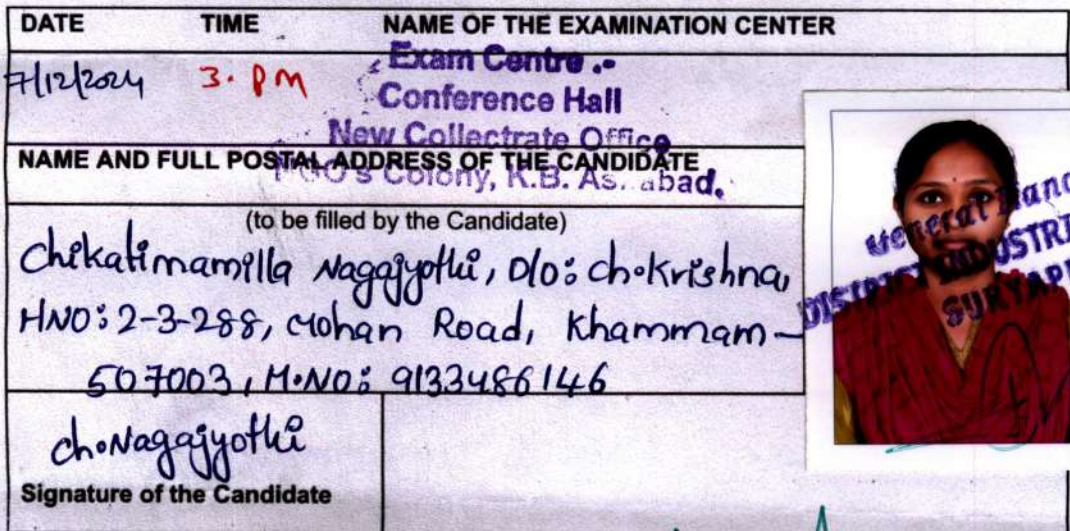 DATE TIME NAME OF THE EXAMINATION CENTER
7/12/2024 3. PM
Exam Centre :-
Conference Hall
New Collectrate Office
NGO's Colony, K.B.
NAME AND FULL POSTAL ADDRESS OF THE CANDIDATE
(to be filled by the Candidate)
Chikatimamilla Nagajyothi, D/o: Ch.Krishna,
HNO: 2-3-288, Mohan Road, Khammam -
507003, M.NO: 9133486146
ch.Nagajyothi
Signature of the Candidate
General
DISTRICT